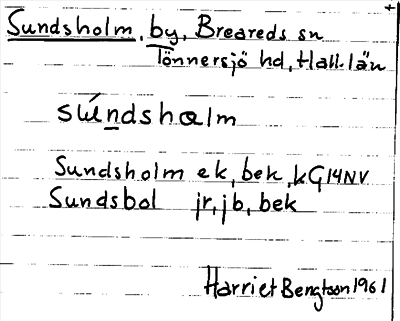 Sundsholm, by, Breareds sn
Tönnersjö hd, Hall. län
súndshalm
Sundsholm ek, bek, kG14NV
Sundsbol jr, jb, bek
Harriet Bengtson 1961